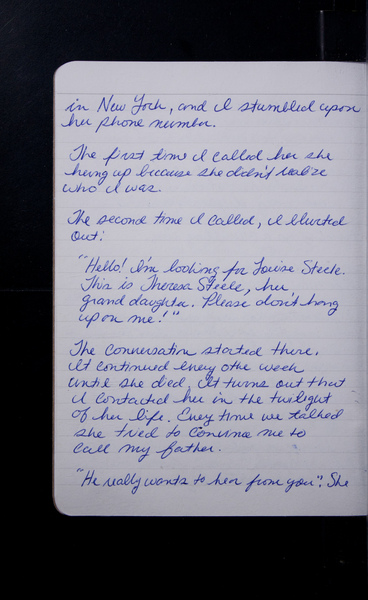 in New York, and I stumbled upon
her phone number.
The first time I called her she
hung up because she didn't realize
who I was.
The second time I called, I blurted
out:
"Hello! I'm looking for Louise Steele.
This is Theresa Steele, her
grand daughter. Please don't hang
up on me!"
The conversation started there.
It continued every othe week
until she died. It turns out that
I contacted her in the twilight
of her life. Every time we talked
she tried to convince me to
call my father.
"He really wants to hear from you". She